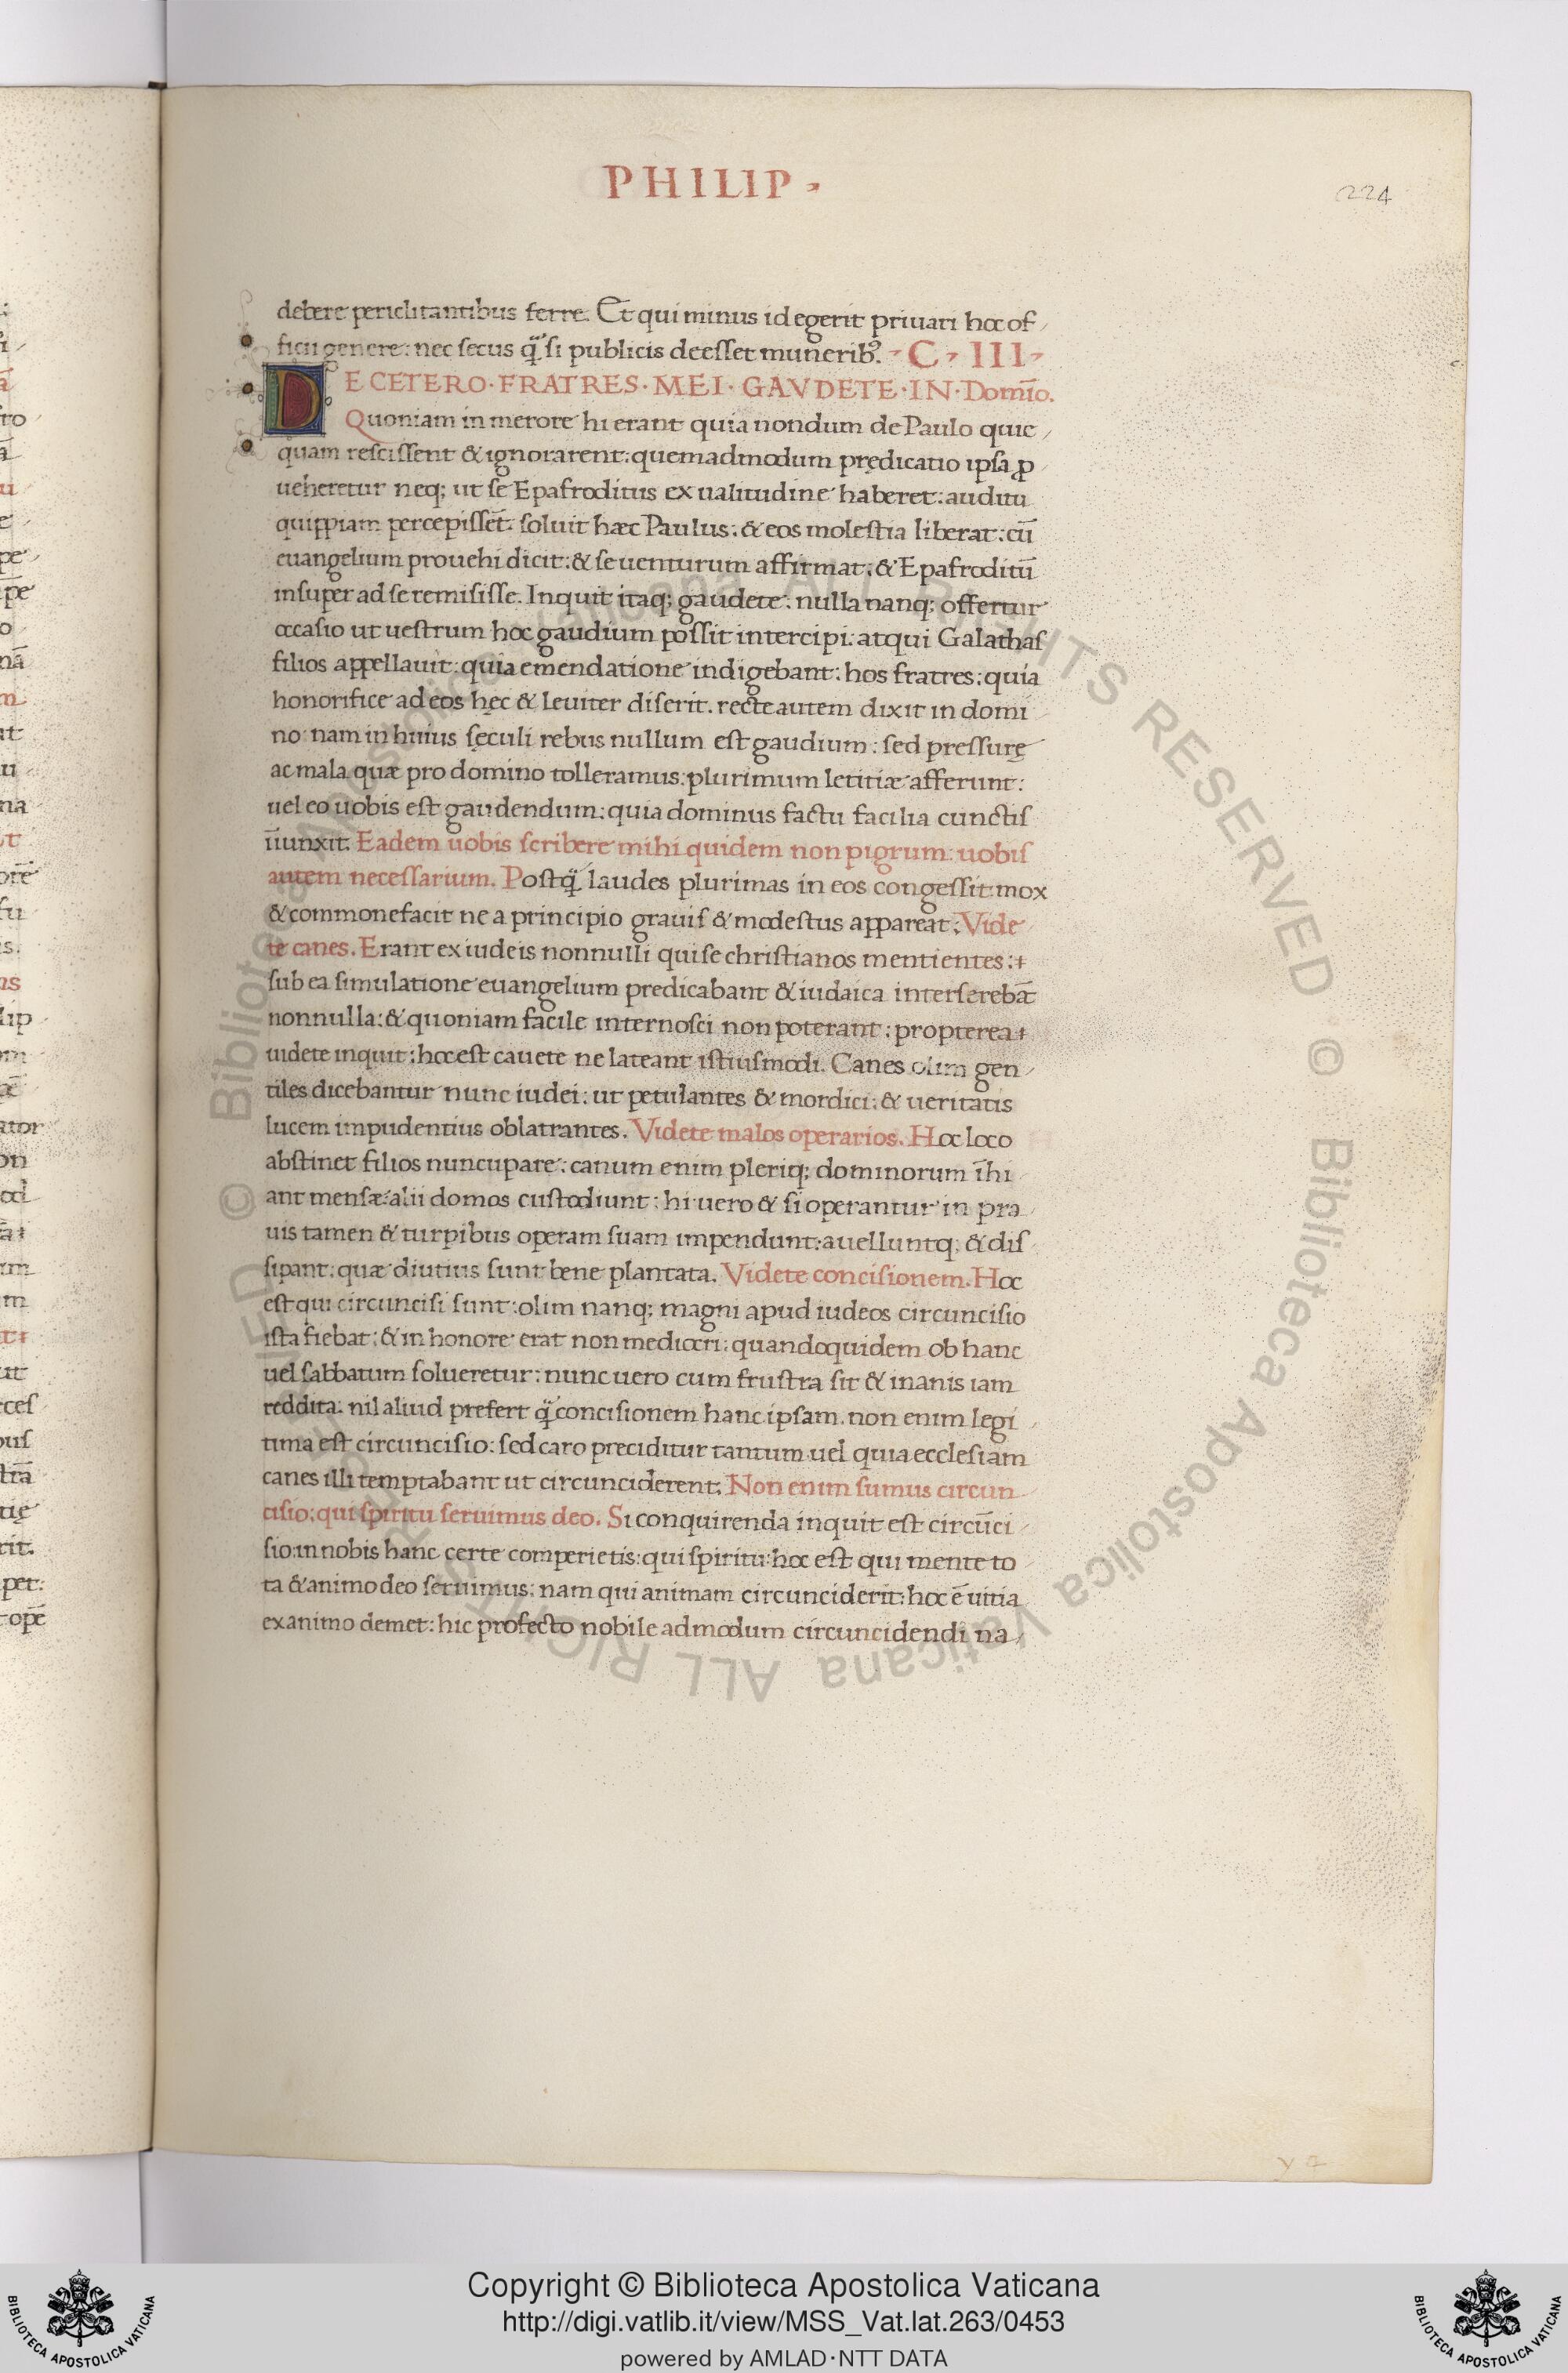 PHILIP ·
224
debere periclitantibus ferre. Et qui minus id egerit priuari hoc of
ficii genere: nec secus q̃ si publicis deesset munerib⁹. C · III ·
DE CETERO · FRATRES · MEI · GAVDETE · IN · Domĩo.
Quoniam in merore hi erant quia nondum de Paulo quic
quam rescissent & ignorarent: quemadmodum prędicatio ipsa ꝓ
ueheretur neq; ut se Epafroditus ex ualitudine haberet: auditu
quippiam percepissẽt. soluit hæc Paulus: & eos molestia liberat: cũ
euangelium prouehi dicit: & se uenturum affirmat: & Epafroditũ
insuper ad se remisisse. Inquit itaq; gaudete: nulla nanq; offertur
occasio ut uestrum hoc gaudium possit intercipi. atqui Galathas
filios appellauit: quia emendatione indigebant: hos fratres: quia
honorifice ad eos hęc & leuiter diserit. recte autem dixit in domi
no: nam in huius sęculi rebus nullum est gaudium: sed pressurę
ac mala quæ pro domino tolleramus: plurimum letitiæ afferunt:
uel eo uobis est gaudendum: quia dominus factu facilia cunctis
iĩunxit. Eadem uobis scribere mihi quidem non pigrum: uobis
autem necessarium. Postq̃ laudes plurimas in eos congessit mox
& commonefacit ne a principio grauis & modestus appareat: Vide
te canes. Erant ex iudeis nonnulli qui se christianos mentientes:
sub ea simulatione euangelium predicabant & iudaica interserebãt
nonnulla: & quoniam facile internosci non poterant: propterea
uidete inquit: hoc est cauete ne lateant istiusmodi. Canes olim gen
tiles dicebantur nunc iudei: ut petulantes & mordici: & ueritatis
lucem impudentius oblatrantes. Videte malos operarios. Hoc loco
abstinet filios nuncupare: canum enim pleriq; dominorum ĩhi
ant mensæ: alii domos custodiunt: hi uero & si operantur in pra
uis tamen & turpibus operam suam impendunt: auelluntq; & dis
sipant: quæ diutius sunt bene plantata. Videte concisionem. Hoc
est qui circuncisi sunt: olim nanq; magni apud iudeos circuncisio
ista fiebat: & in honore erat non mediocri: quandoquidem ob hanc
uel sabbatum solueretur: nunc uero cum frustra sit & inanis iam
reddita: nil aliud prefert q̃ concisionem hanc ipsam. non enim legi
tima est circuncisio: sed caro preciditur tantum uel quia ecclesiam
canes illi temptabant ut circunciderent. Non enim sumus circun
cisio: qui spiritu seruimus deo. Si conquirenda inquit est circũci
sio: in nobis hanc certe comperietis: qui spiritu: hoc est qui mente to
ta & animo deo seruimus: nam qui animam circunciderit: hoc ẽ uitia
ex animo demet: hic profecto nobile admodum circuncidendi na
y 2
© Biblioteca Apostolica Vaticana ALL RIGHTS RESERVED © Biblioteca Apostolica Vaticana ALL RIGHTS RESERVED
BIBLIOTECA APOSTOLICA VATICANA
Copyright © Biblioteca Apostolica Vaticana
http://digi.vatlib.it/view/MSS_Vat.lat.263/0453
powered by AMLAD·NTT DATA
BIBLIOTECA APOSTOLICA VATICANA